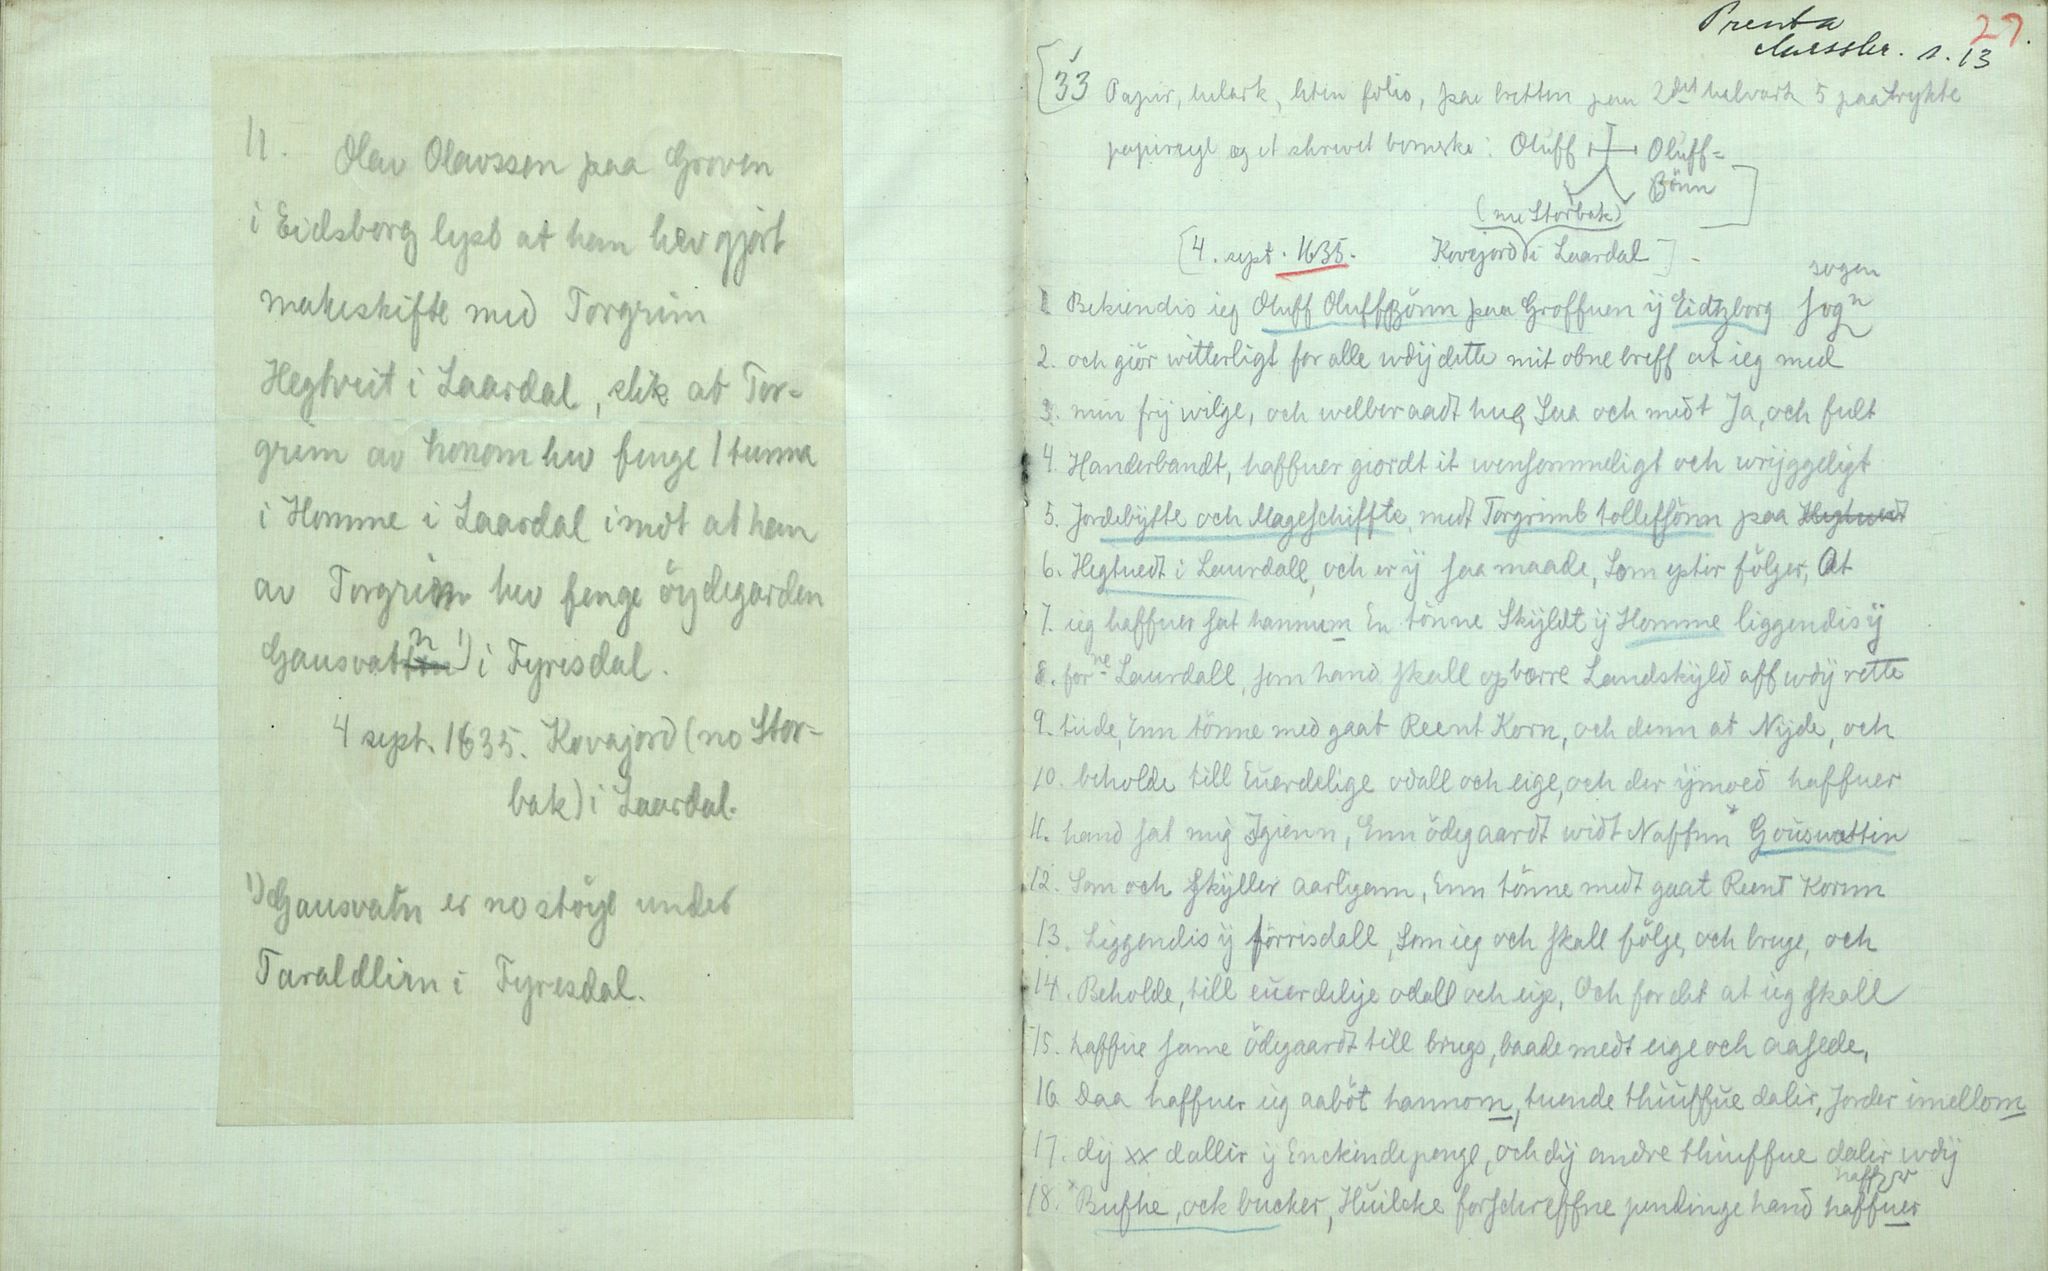 11. Olav Olavssen paa Groven
i Eidsborg lyst at han hev gjort
makeskifte med Torgrim
Hegtveit i Laardal, slik at Tor-
grim av honom hev fenge 1 tunna
i Homme i Laardal imot at han
av Torgrim hev fenge öydegarden
Gausvatn 1) i Fyresdal.
4 sept. 1635. Kovajord (no Stor-
bak) i Laardal.
1) Gausvatn er no støyl under
Taraldlien i Fyresdal.
Prenta
s. 13
27.
33 Papir, heilark, liten folio, paa bretten paa 2det halvark 5 paatrykte
papirsegl og et skrevet bomerke: Oluff Oluff=
Bönn
(nu Storbak)
[4. sept. 1635. Kovejord i Laardal]
sogen
1. Bekiendis ieg Oluff Oluffßönn paa Groffuen ÿ Eidtzborg sogn
2. och giör witterligt for alle wdÿ dette mit obne breff at ieg med
3. min frÿ wilge, och welberaadt hug, Saa och medt Ja, och fult
4. Handerbandt, haffuer giordt it wensommeligt och wrÿggeligt
5. Jordebÿtte och Mageschiffte medt Torgrimb tollefsönn paa Hegtuedt
6. Hegtuedt i Laurdall, och er ÿ saa maade, Som epter fölger, At
7. ieg haffuer sat hannum En tönne Skÿldt ÿ Homme liggendis ÿ
8. forne Laurdall, som hand skall opbærre Landskÿld aff wdÿ rette
9. tiide, Enn tönne med gaat Reent Korn, och denn at Nÿde, och
10. beholde till Euerdelige odall och eige, och der ÿmoed haffuer
11. hand sat mig Igienn, Enn ödegaardt widt Naffnn * Gouswattin
12. Som och skÿller aarligenn, Enn tönne medt gaat Reent Kornn
13. Liggendis ÿ förrisdall, Som ieg och skall fölge, och bruge, och
14. Beholde, till euerdelige odall och eige, Och for det at ieg skall
15. haffue same ödegaardt till brugs, baade medt eige och aasede,
16. Daa haffuer ieg aaböt hannom, tuende thiuffue daler, Jorder imellom
17. dÿ xx daller ÿ Enckende penge, och dÿ andre thiuffue daler wdÿ
haffuer
18. * Bufhe, ock bucker, Huilcke forschreffne pendinge hand haffuer